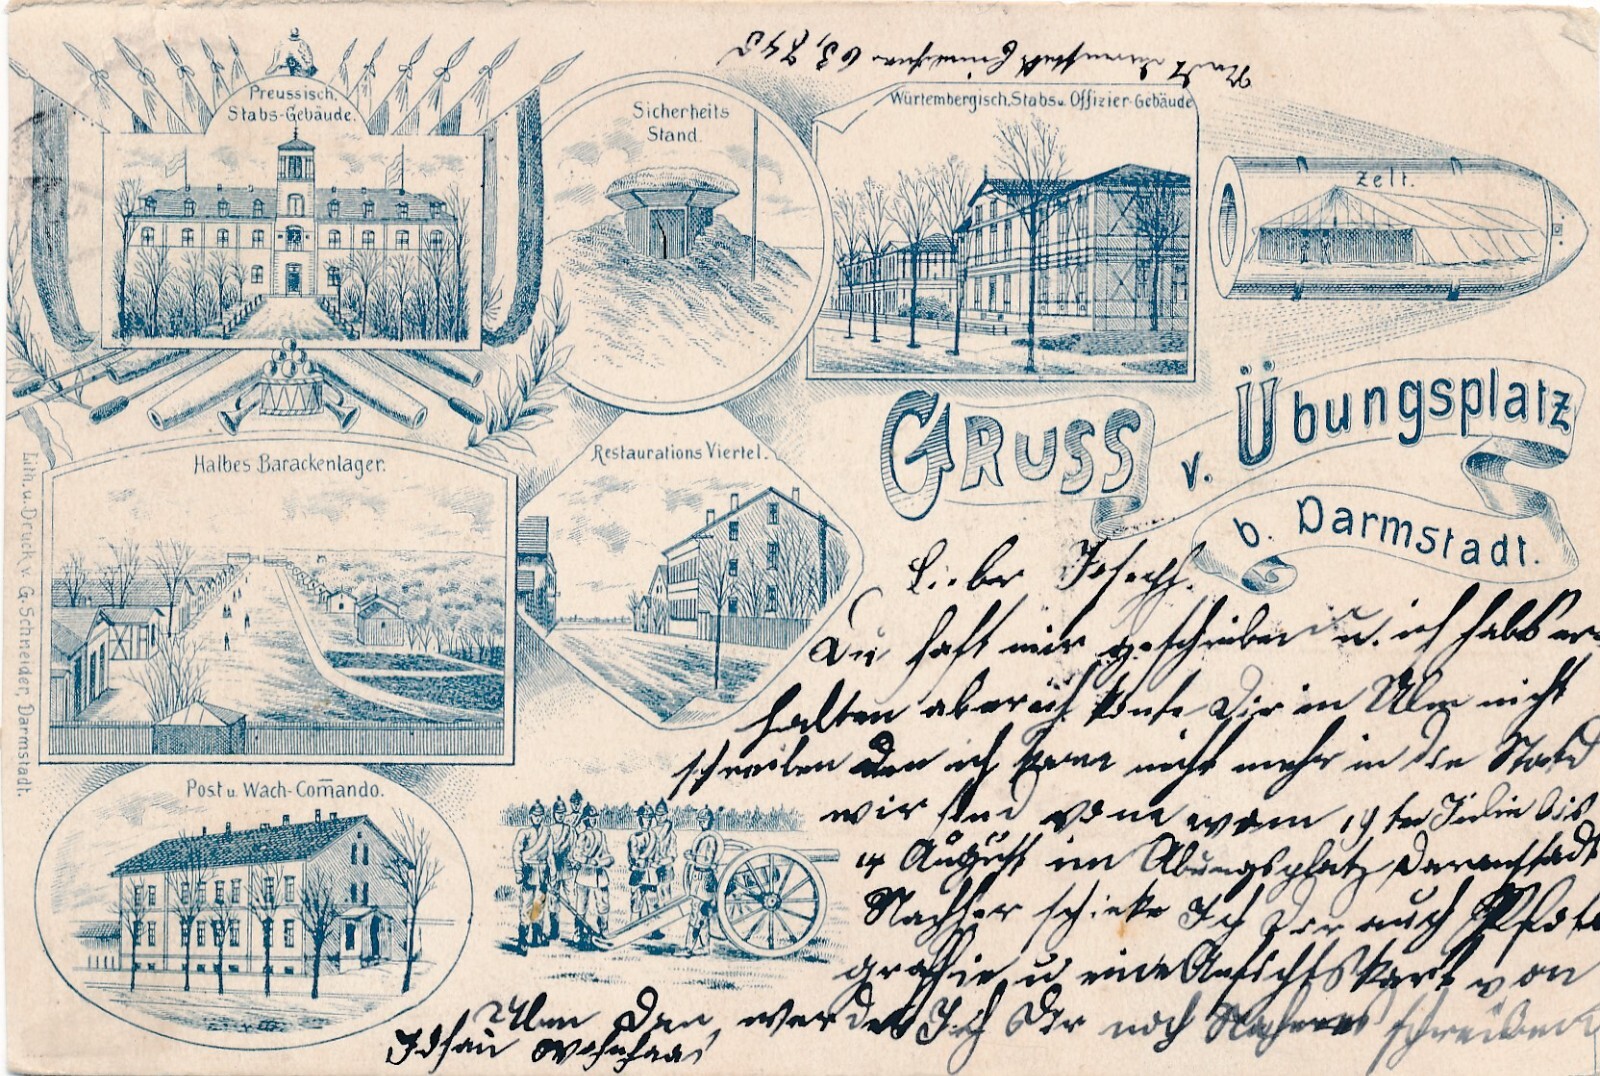 Preussisch.
Stabs-Gebäude.
Sicherheits
Stand.
Würtembergisch. Stabs u. Offizier-Gebäude
Zelt.
Gruss v. Übungsplatz
b. Darmstadt.
Halbes Barackenlager.
Restaurations Viertel.
Post u Wach-Com̄ando.
Lith. u. Druck v. G. Schneider, Darmstadt.
Lieber Joseph.
Du hast mir geschrieben u. ich habs er-
halten aber ich konte Dir in Ulm nicht
schreiben den ich kome nicht mehr in die Stadt
wir sind vom 19ten bis
4 August im Übungsplatz Darmstadt
Nachher schicke Ich Dir auch Pfoto
grafie u eine Ansichtskart von
Ulm Dan werde Ich Dir noch schreiben